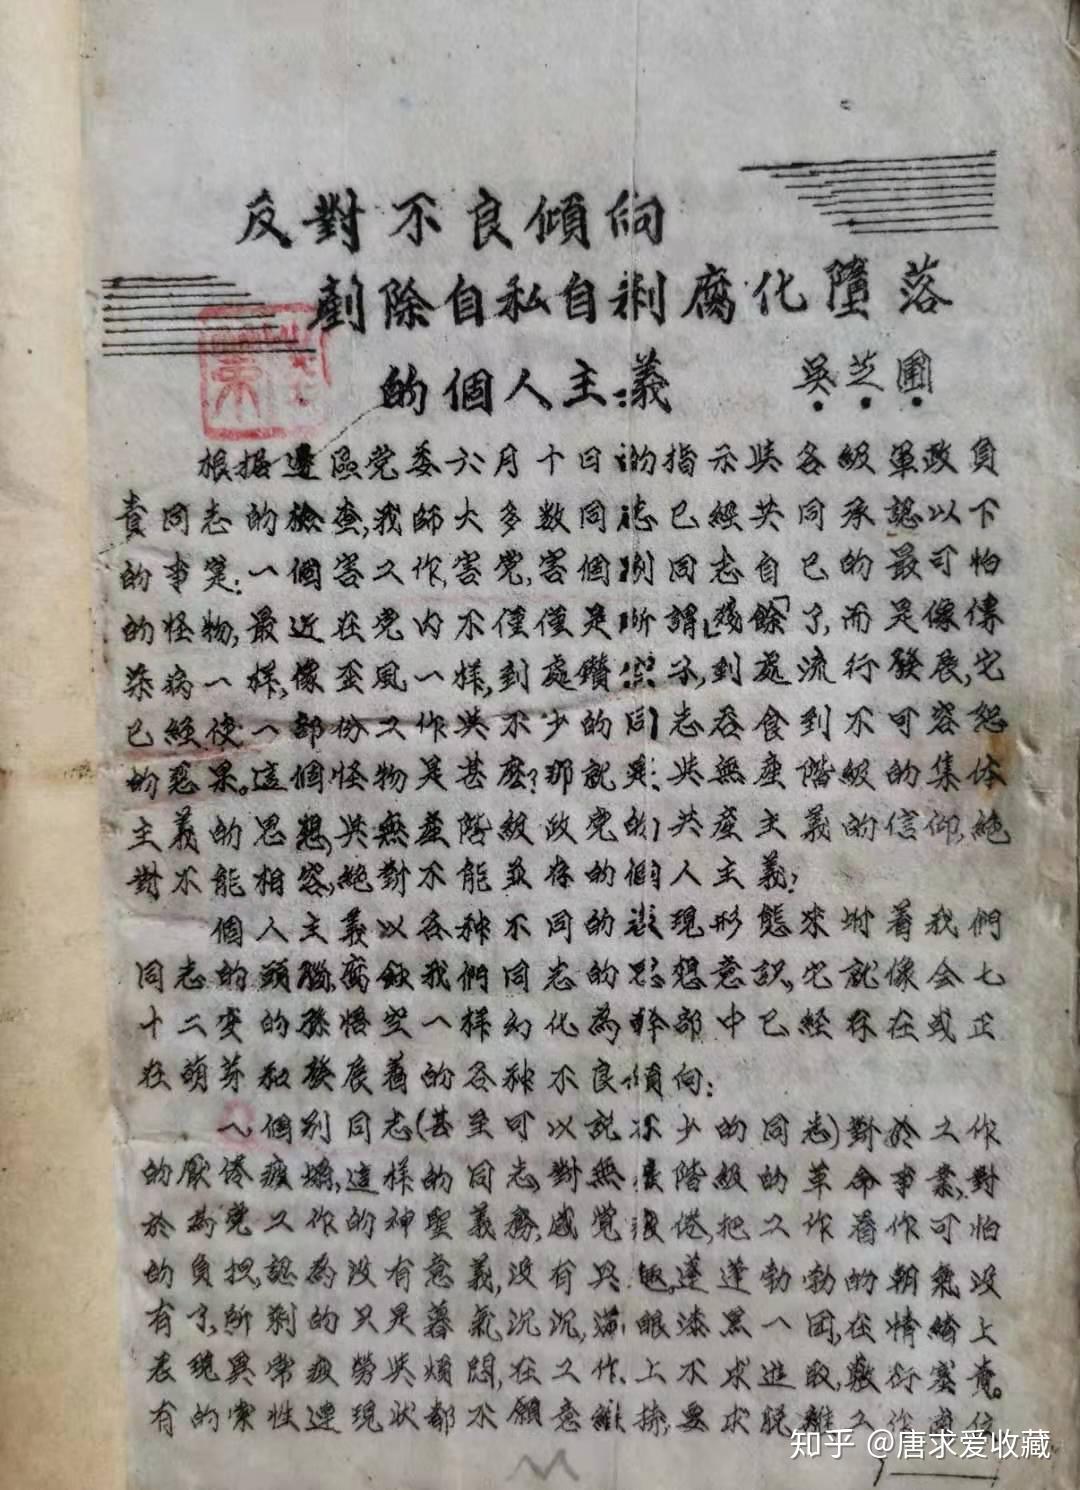 反對不良傾向
剷除自私自利腐化墮落
的個人主義 吳芝圃
根据邊區党委六月十日的指示與各級軍政負
責同志的檢查,我師大多数同志已經共同承認以下
的事实:一個害工作,害党,害個別同志自已的最可怕
的怪物,最近在党内不僅僅是所謂「殘餘」了,而是像傳
染病一样,像歪風一样,到處鑽空子,到處流行發展,它
已經使一部份工作與不少的同志吞食到不可容忍
的惡果。這個怪物是甚麽?那就是:與無產階級的集体
主義的思想,與無產階級政党的共產主義的信仰,絶
對不能相容,絶對不能並存的個人主義!
個人主義以各种不同的表現形態來坿着我們
同志的頭腦,腐蝕我們同志的思想意識,它就像会七
十二变的孫悟空一様幻化為幹部中已经存在或正
在萌芽和發展着的各种不良傾向:
一個別同志(甚至可以説不少的同志)對於工作
的厭倦疲塌,這样的同志,對無產階級的革命事業,對
於為党工作的神聖義務,感觉很倦,把工作看作可怕
的負担,認為没有意義,没有兴趣,蓬蓬勃勃的朝氣没
有了,所剩的只是暮氣沉沉,满眼漆黑一团,在情緒上
表現異常疲勞與煩悶,在工作上不求進取,敷衍塞責。
有的索性連現状都不願意維持,要求脱離工作崗位,
知乎 @唐求爱收藏